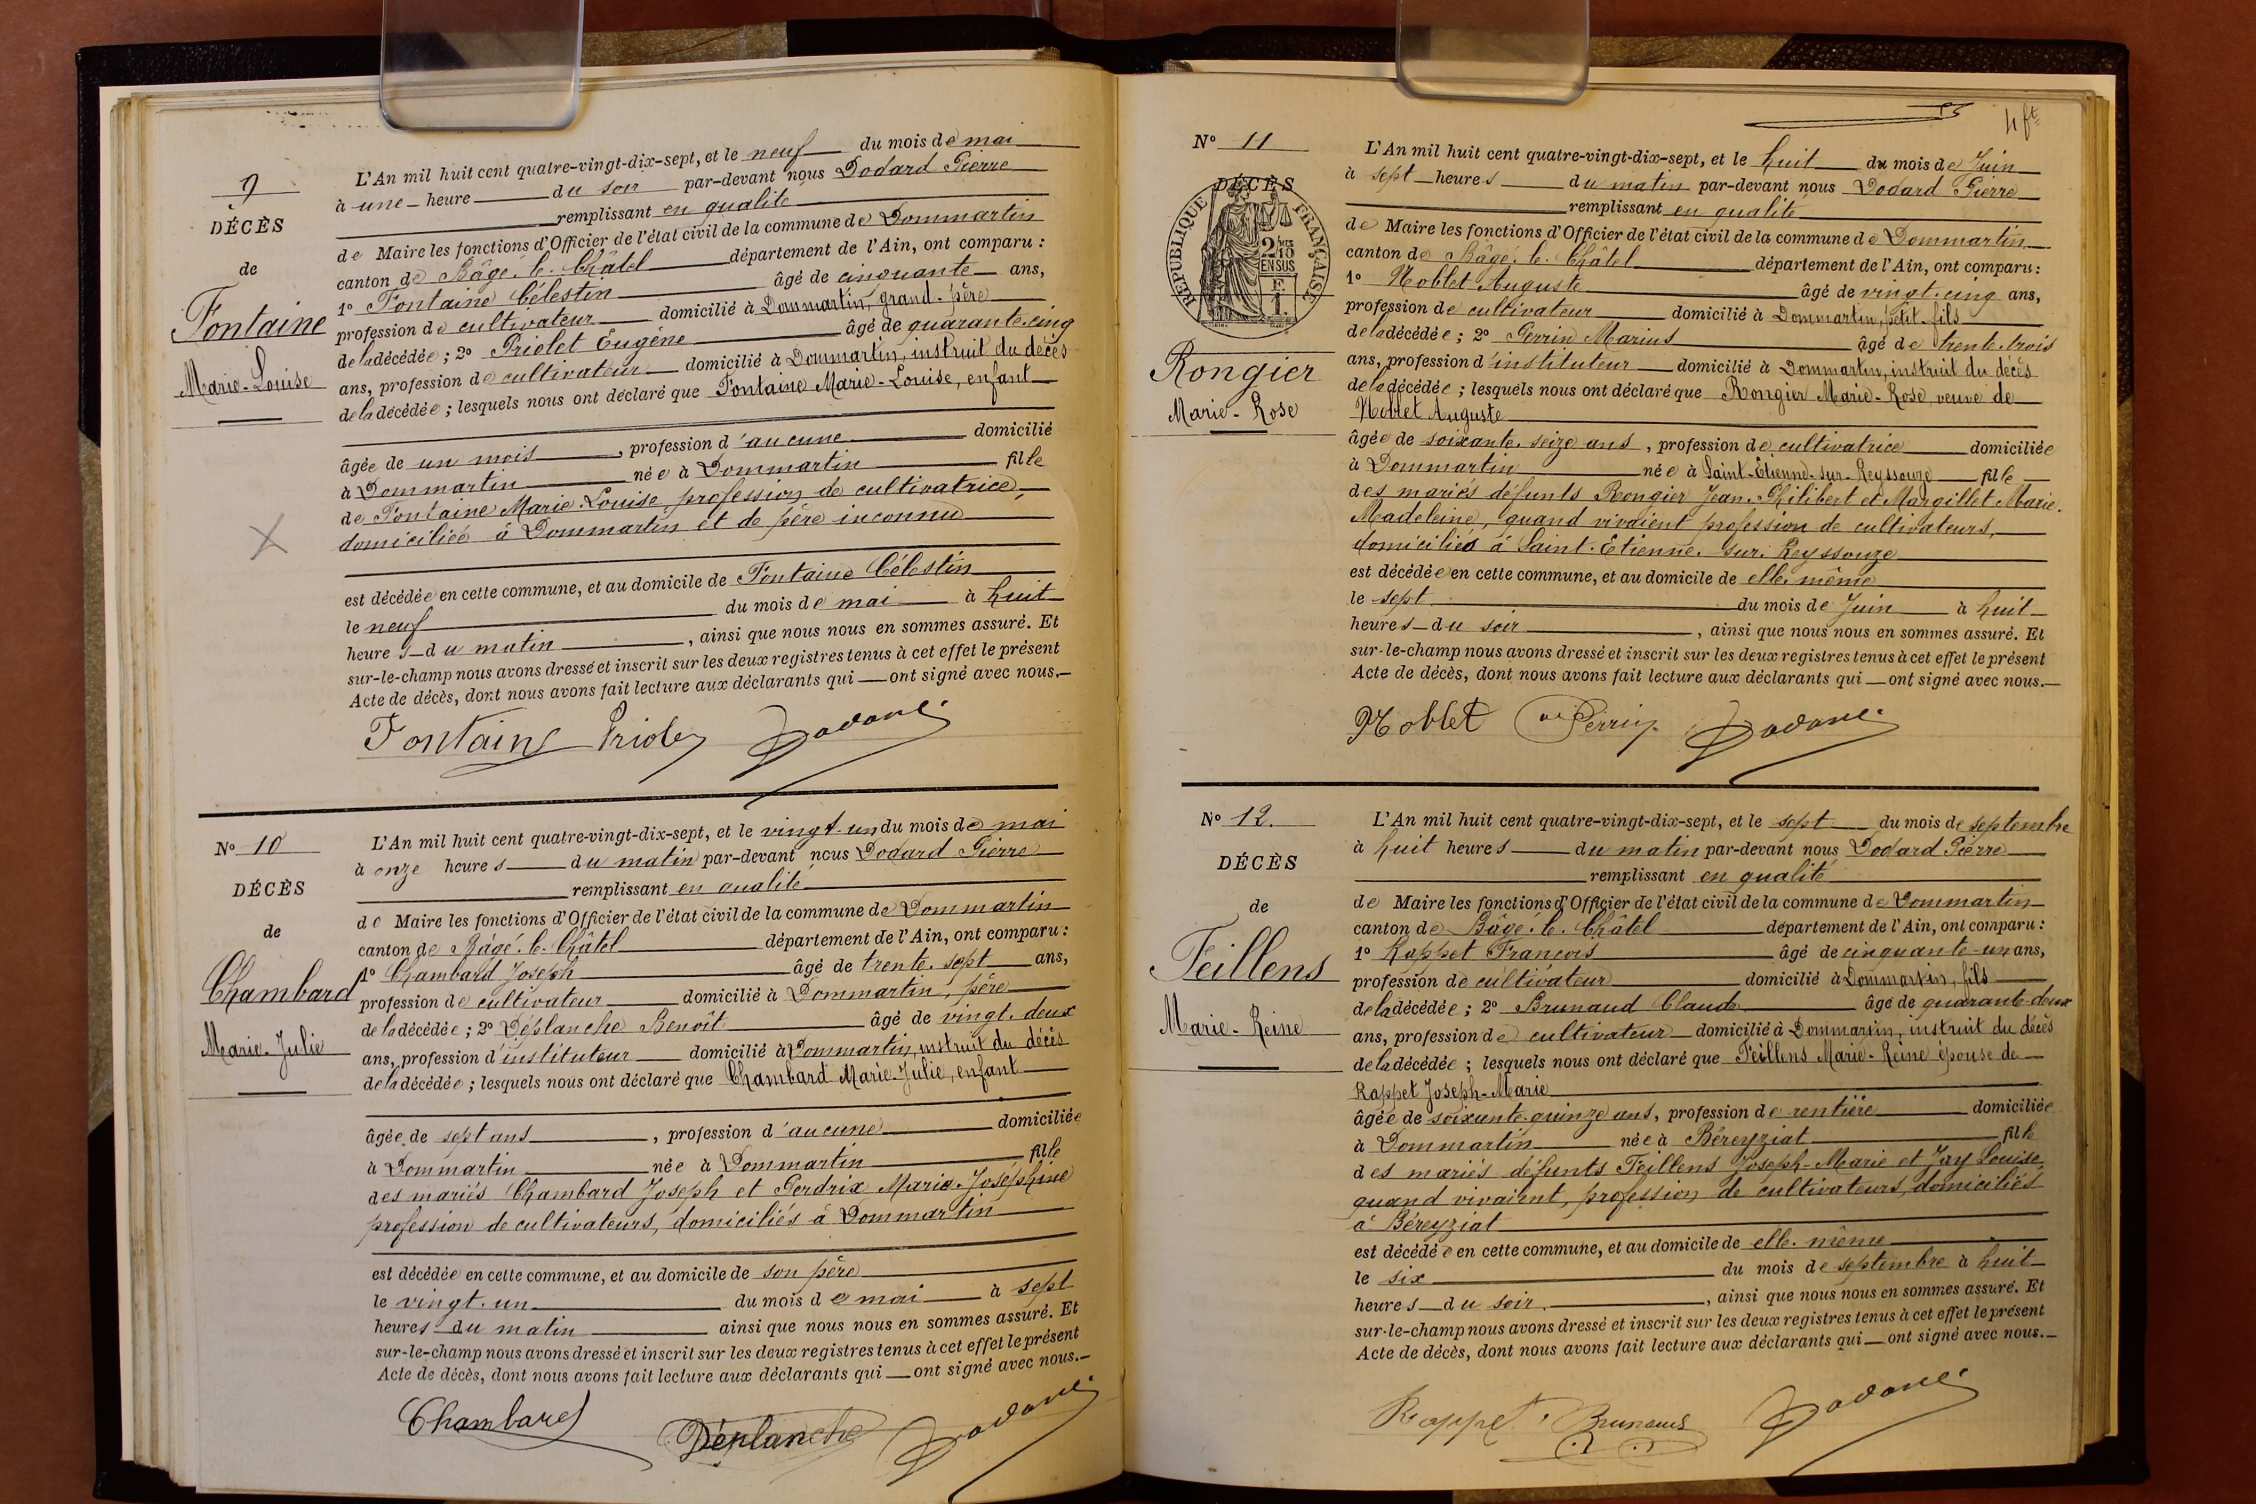 9
DÉCÈS
de
Fontaine
Marie-Louise
L'An mil huit cent quatre-vingt-dix-sept, et le neuf du mois de mai
à une heure du soir par-devant nous Dodard Pierre
remplissant en qualité
de Maire les fonctions d'Officier de l'état civil de la commune de Dommartin
canton de Bâgé-le-Châtel département de l'Ain, ont comparu :
1° Fontaine Célestin âgé de cinquante ans,
profession de cultivateur domicilié à Dommartin, grand-père
de la décédée ; 2° Priolet Eugène âgé de quarante-cinq
ans, profession de cultivateur domicilié à Dommartin, instruit du décès
de la décédée ; lesquels nous ont déclaré que Fontaine Marie-Louise, enfant
âgée de un mois, profession d'aucune domicilié
à Dommartin née à Dommartin fille
de Fontaine Marie-Louise, profession de cultivatrice,
domiciliée à Dommartin et de père inconnu
est décédée en cette commune, et au domicile de Fontaine Célestin
le neuf du mois de mai à huit
heures du matin, ainsi que nous nous en sommes assuré. Et
sur-le-champ nous avons dressé et inscrit sur les deux registres tenus à cet effet le présent
Acte de décès, dont nous avons fait lecture aux déclarants qui ont signé avec nous.
Fontaine Priolet Dodard
N° 10
DÉCÈS
de
Chambard
Marie-Julie
L'An mil huit cent quatre-vingt-dix-sept, et le vingt-un du mois de mai
à onze heures du matin par-devant nous Dodard Pierre
remplissant en qualité
de Maire les fonctions d'Officier de l'état civil de la commune de Dommartin
canton de Bâgé-le-Châtel département de l'Ain, ont comparu :
1° Chambard Joseph âgé de trente-sept ans,
profession de cultivateur domicilié à Dommartin, père
de la décédée ; 2° Déplanche Benoît âgé de vingt-deux
ans, profession d'instituteur domicilié à Dommartin, instruit du décès
de la décédée ; lesquels nous ont déclaré que Chambard Marie-Julie, enfant
âgée de sept ans, profession d'aucune domiciliée
à Dommartin née à Dommartin fille
des mariés Chambard Joseph et Perdrix Marie-Joséphine
profession de cultivateurs, domiciliés à Dommartin
est décédée en cette commune, et au domicile de son père
le vingt-un du mois de mai à sept
heures du matin ainsi que nous nous en sommes assuré. Et
sur-le-champ nous avons dressé et inscrit sur les deux registres tenus à cet effet le présent
Acte de décès, dont nous avons fait lecture aux déclarants qui ont signé avec nous.
Chambard Déplanche Dodard
4 ft
N° 11
DÉCÈS
RÉPUBLIQUE FRANÇAISE
2/10
EN SUS
E
1
Rongier
Marie-Rose
L'An mil huit cent quatre-vingt-dix-sept, et le huit du mois de Juin
à sept heures du matin par-devant nous Dodard Pierre
remplissant en qualité
de Maire les fonctions d'Officier de l'état civil de la commune de Dommartin
canton de Bâgé-le-Châtel département de l'Ain, ont comparu :
1° Noblet Auguste âgé de vingt-cinq ans,
profession de cultivateur domicilié à Dommartin, petit-fils
de la décédée ; 2° Perrin Marius âgé de trente-trois
ans, profession d'instituteur domicilié à Dommartin, instruit du décès
de la décédée ; lesquels nous ont déclaré que Rongier Marie-Rose, veuve de
Noblet Auguste
âgée de soixante-seize ans, profession de cultivatrice domiciliée
à Dommartin née à Saint-Etienne-sur-Reyssouze fille
des mariés défunts Rongier Jean-Philibert et Margillet Marie-
Madeleine, quand vivaient profession de cultivateurs,
domiciliés à Saint-Etienne-sur-Reyssouze
est décédée en cette commune, et au domicile de elle-même
le sept du mois de Juin à huit
heures du soir, ainsi que nous nous en sommes assuré. Et
sur-le-champ nous avons dressé et inscrit sur les deux registres tenus à cet effet le présent
Acte de décès, dont nous avons fait lecture aux déclarants qui ont signé avec nous.
Noblet Perrin Dodard
N° 12
DÉCÈS
de
Feillens
Marie-Reine
L'An mil huit cent quatre-vingt-dix-sept, et le sept du mois de septembre
à huit heures du matin par-devant nous Dodard Pierre
remplissant en qualité
de Maire les fonctions d'Officier de l'état civil de la commune de Dommartin
canton de Bâgé-le-Châtel département de l'Ain, ont comparu :
1° Rappet François âgé de cinquante-un ans,
profession de cultivateur domicilié à Dommartin, fils
de la décédée ; 2° Brunaud Claude âgé de quarante-deux
ans, profession de cultivateur domicilié à Dommartin, instruit du décès
de la décédée ; lesquels nous ont déclaré que Feillens Marie-Reine épouse de
Rappet Joseph-Marie
âgée de soixante-quinze ans, profession de rentière domiciliée
à Dommartin née à Béreyziat fille
des mariés défunts Feillens Joseph-Marie et Jay Louise,
quand vivaient, profession de cultivateurs, domiciliés
à Béreyziat
est décédée en cette commune, et au domicile de elle-même
le six du mois de septembre à huit
heures du soir, ainsi que nous nous en sommes assuré. Et
sur-le-champ nous avons dressé et inscrit sur les deux registres tenus à cet effet le présent
Acte de décès, dont nous avons fait lecture aux déclarants qui ont signé avec nous.
Rappet Brunaud Dodard